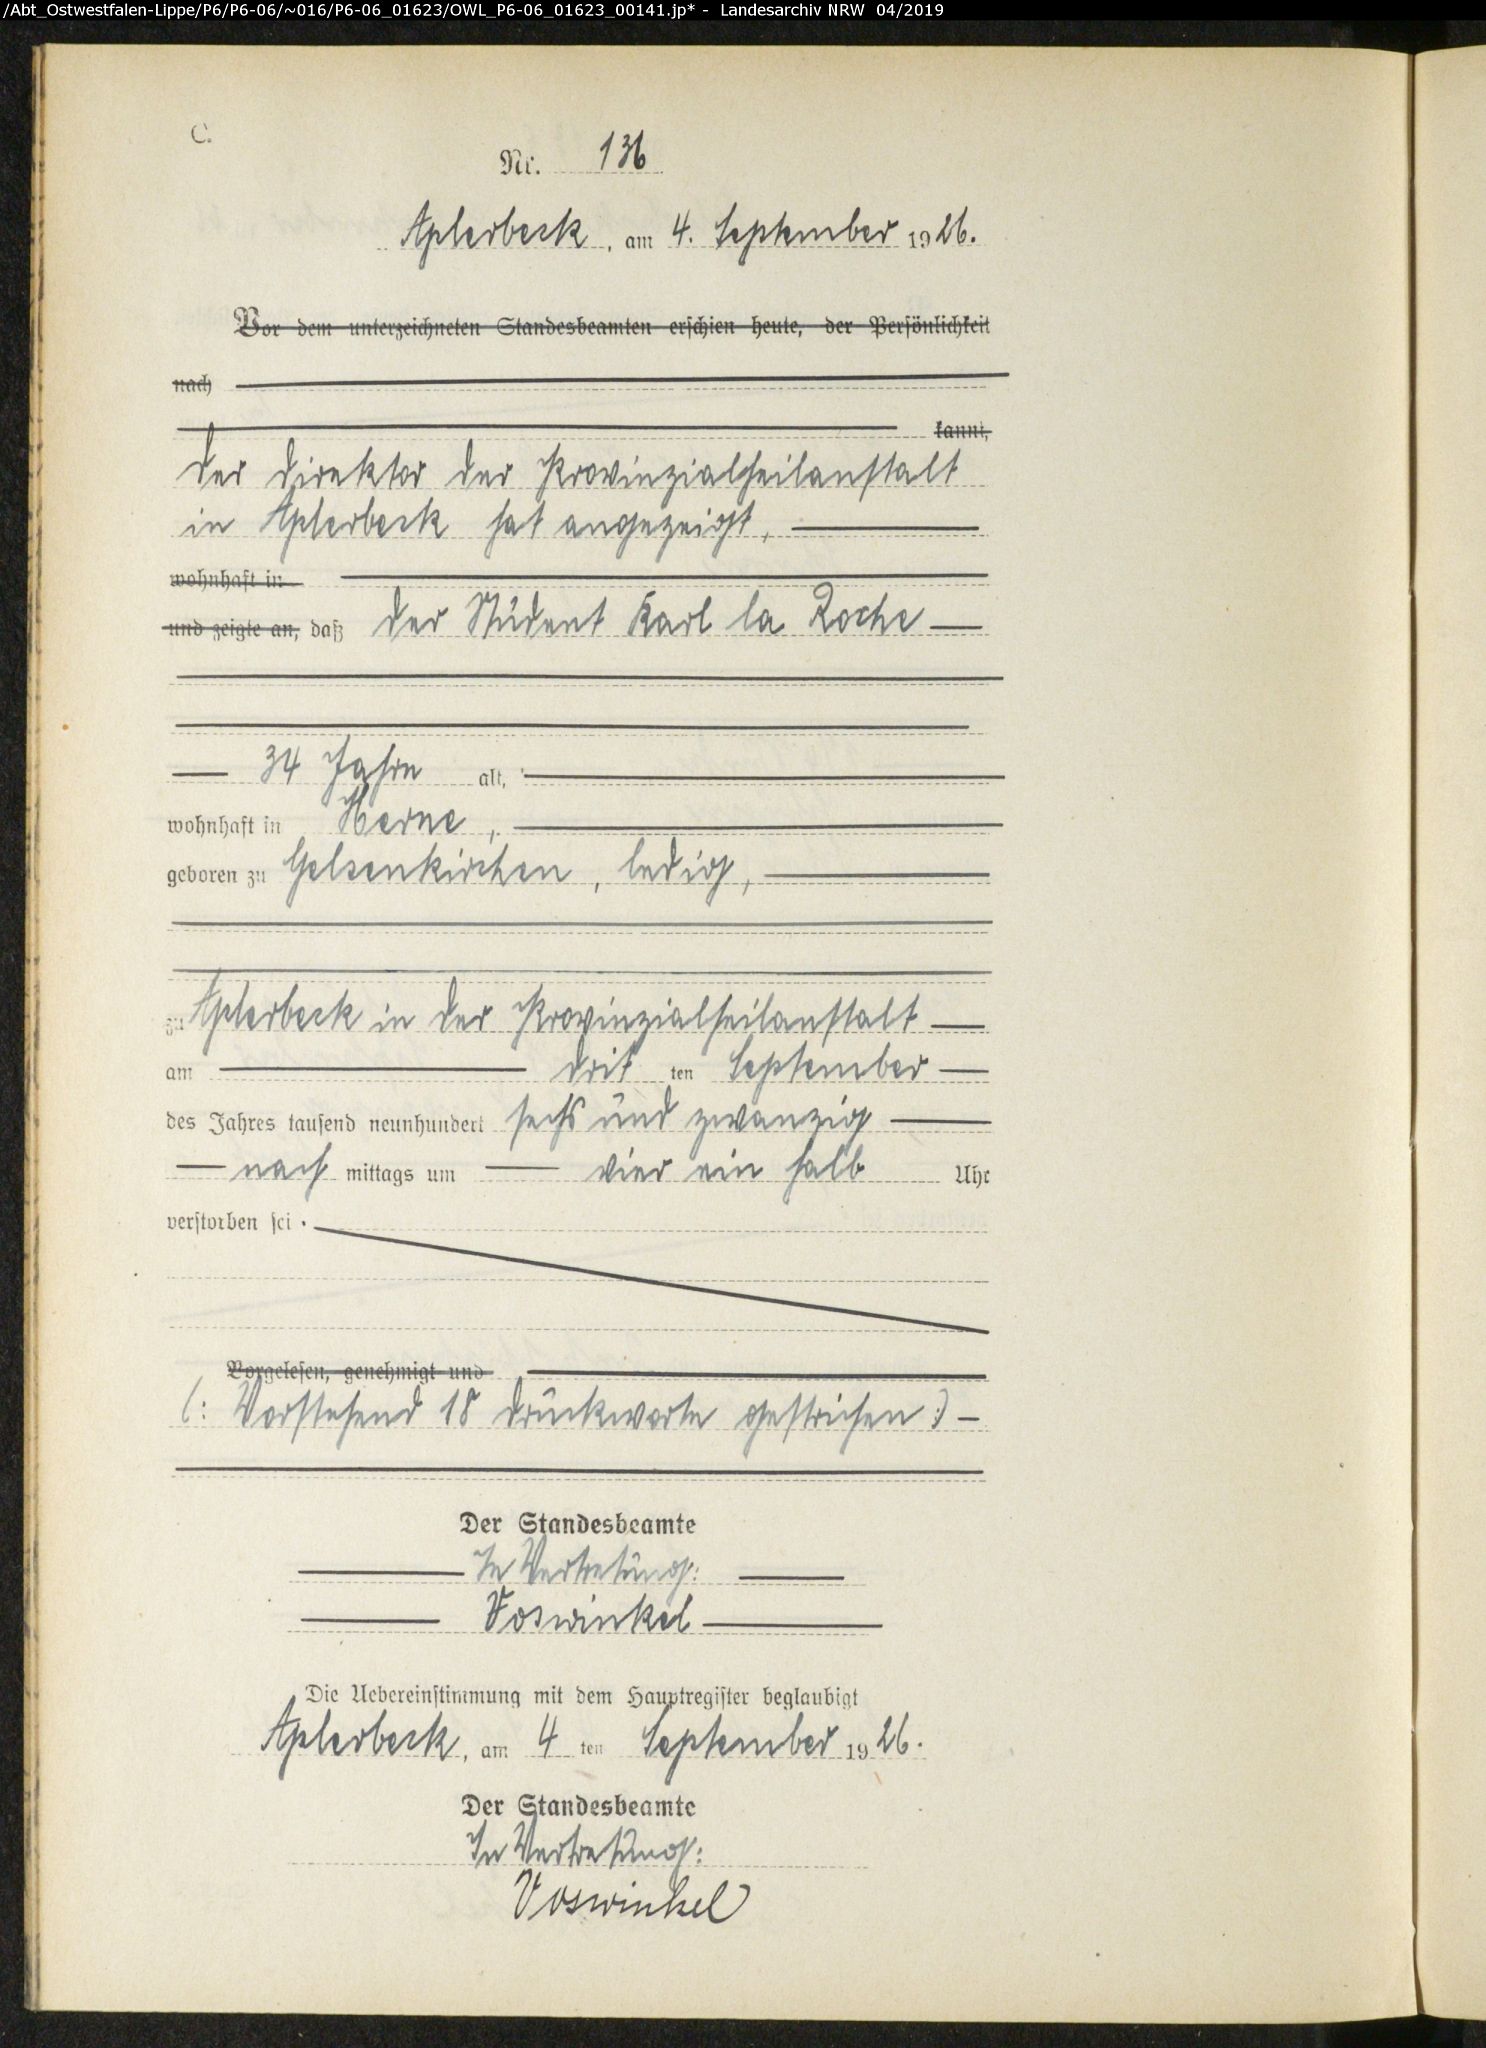 /Abt_Ostwestfalen-Lippe/P6/P6-06/~016/P6-06_01623/OWL_P6-06_01623_00141.jp* - Landesarchiv NRW 04/2019
C.
Nr. 136
Aplerbeck, am 4. September 1926.
Vor dem unterzeichneten Standesbeamten erschien heute, der Persönlichkeit
nach
kannt,
Der Direktor der Provinzialheilanstalt
in Aplerbeck hat angezeigt,
wohnhaft in
und zeigte an, daß der Student Karl la Roche
34 Jahre alt,
wohnhaft in Herne,
geboren zu Gelsenkirchen, ledig,
zu Aplerbeck in der Provinzialheilanstalt
am drit ten September
des Jahres tausend neunhundert sechs und zwanzig
nach mittags um vier ein halb Uhr
verstorben sei.
Vorgelesen, genehmigt und
(: Vorstehend 18 Druckworte gestrichen :)
Der Standesbeamte
In Vertretung:
Voswinkel
Die Uebereinstimmung mit dem Hauptregister beglaubigt
Aplerbeck, am 4 ten September 1926.
Der Standesbeamte
In Vertretung:
Voswinkel